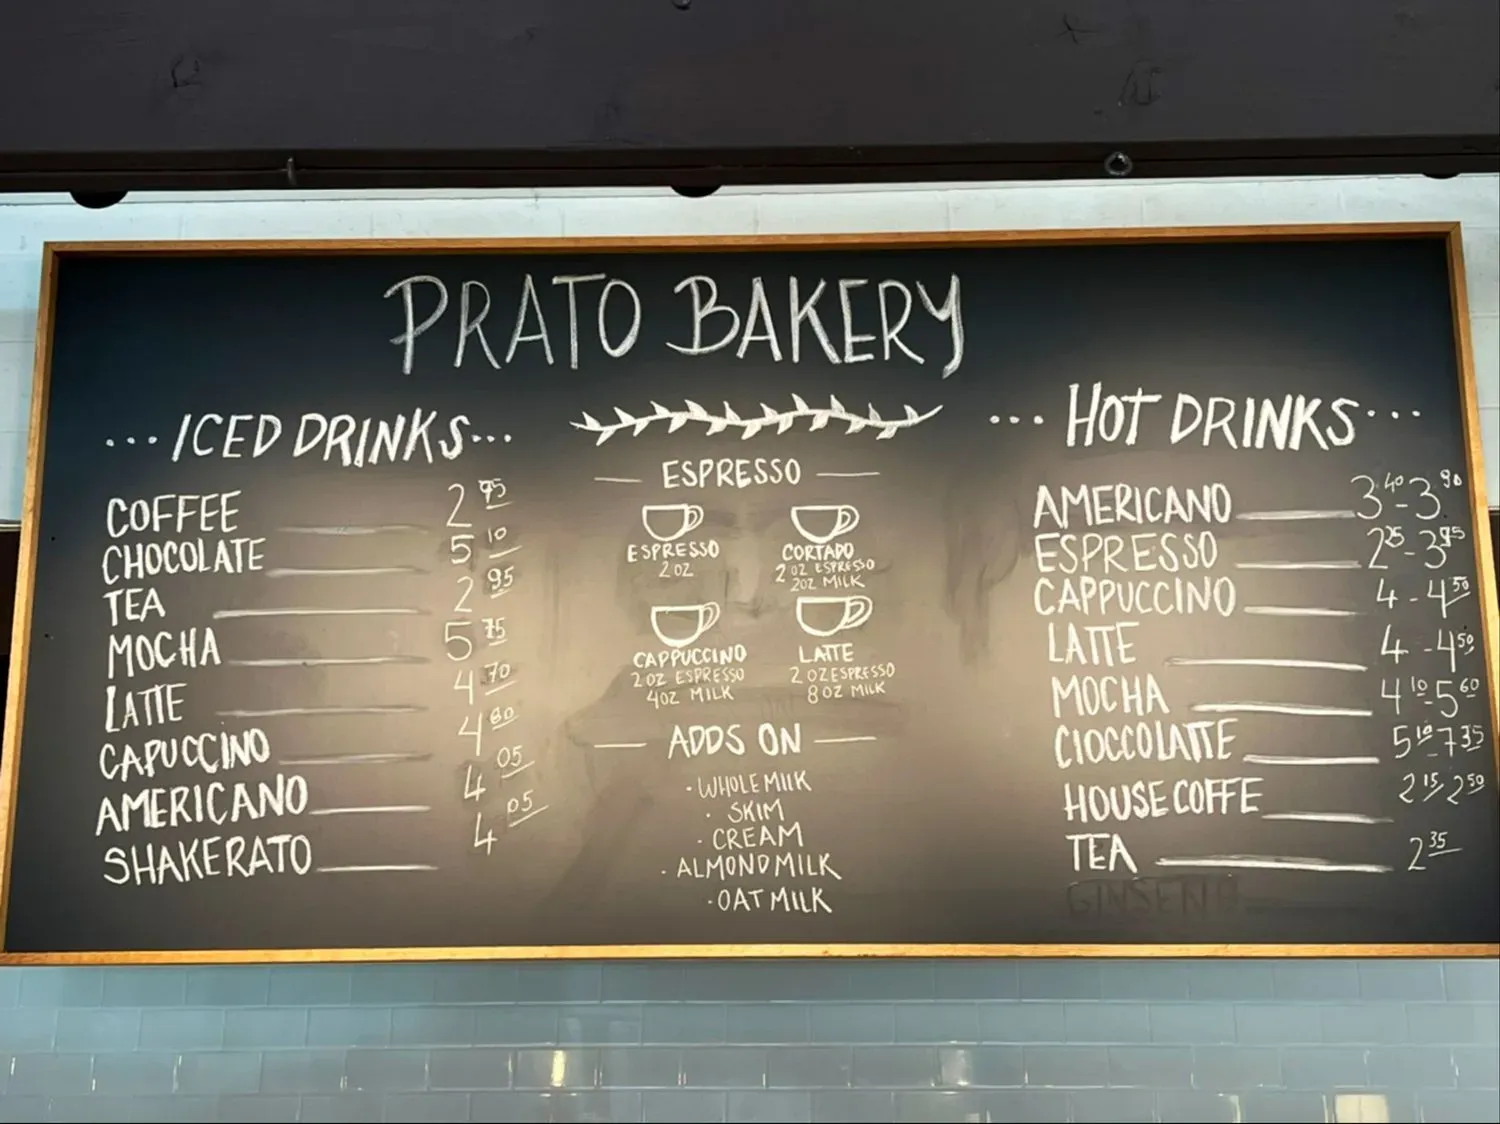 PRATO BAKERY
... ICED DRINKS...
COFFEE 2 95
CHOCOLATE 5 10
TEA 2 95
MOCHA 5 75
LATTE 4 70
CAPUCCINO 4 60
AMERICANO 4 05
SHAKERATO 4 05
ESPRESSO
ESPRESSO
2 OZ
CORTADO
2 OZ ESPRESSO
2OZ MILK
CAPPUCCINO
2 OZ ESPRESSO
4OZ MILK
LATTE
2 OZ ESPRESSO
8 OZ MILK
ADDS ON
· WHOLE MILK
· SKIM
· CREAM
· ALMOND MILK
· OAT MILK
... HOT DRINKS...
AMERICANO 3 40 - 3 90
ESPRESSO 2 25 - 3 95
CAPPUCCINO 4 - 4 50
LATTE 4 - 4 50
MOCHA 4 10 - 5 60
CIOCCOLATTE 5 10 - 7 35
HOUSE COFFE 2 15 2 50
TEA 2 35
GINSENG